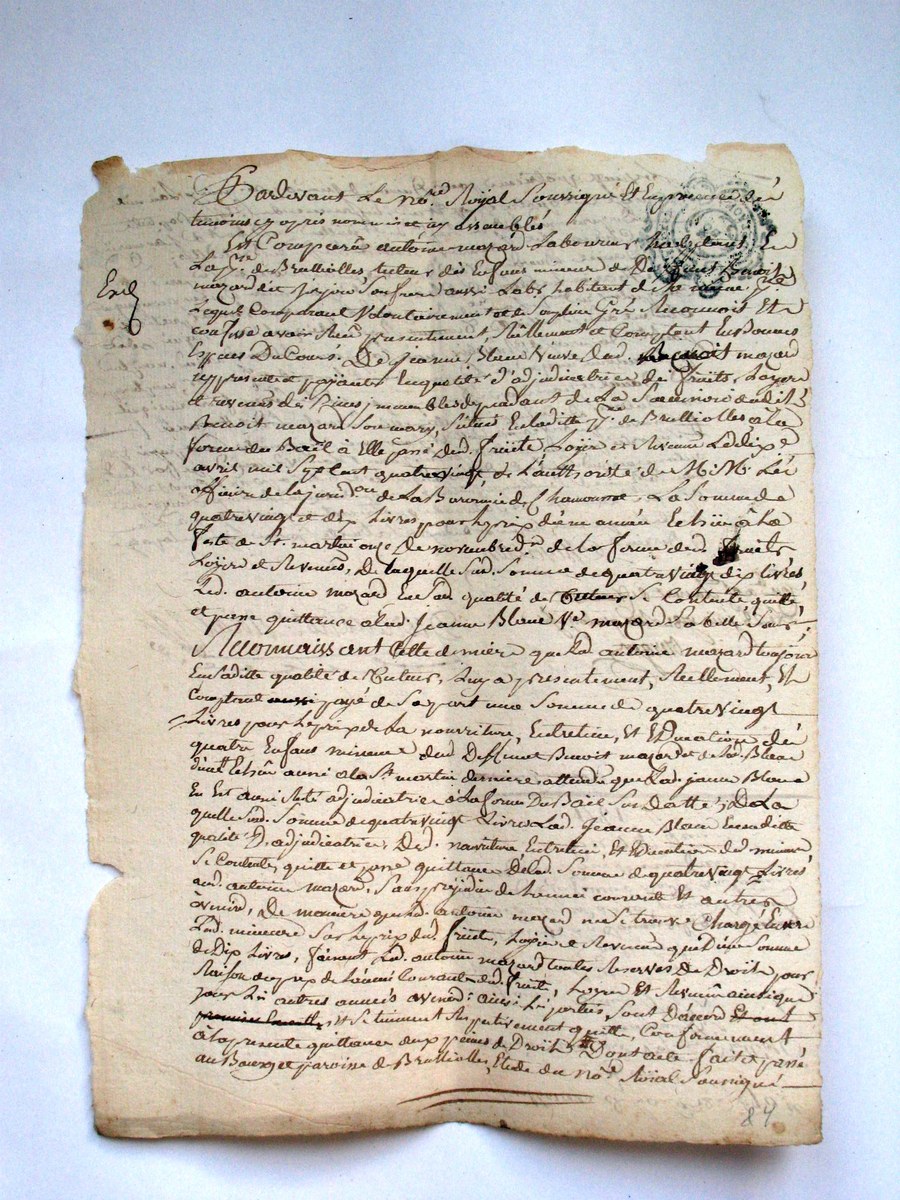 Pardevant Le no.re Royal Soussigné Et En presence des
temoins cy apris nommes et assemblés
Est Comparû antoine mazard Laboureur habitant En
La p.sse de Brulliolles, tuteur des Enfans mineur de Deffunt Benoit
mazard dit son frere aussi Lab.r habitant dud.
Exd
Lequel Comparant Volontairement et de Son plein Gré Reconnoit Et
confesse avoir Recu presentement, Reellement et Comptant En Bonnes
Especes Du Cours. De jeanne Blanc Veuve dud. Benoit mazard
icy presente et payante En qualité d'adjudicatrice des fruits, Loyers
et revenus des fonds, immeubles dependant de La dudit
Benoit mazard Son mary, Situés En laditte p.sse de Brulliolles, a la
forme du Bail à Elle passé desd. fruits Loyers et Revenus Le dix
avril mil Sept Cent quatrevingt, de L'authorité de M.M. Les
officiers de la jurisd.on de La Baronnie de Chamousset, La Somme de
quatre vingt et dix Livres pour Le prix d'une année Echüe à La
feste de St. martin onze De novembre d.er de la ferme desd. fruits
Loyers et Revenus, De laquelle Sud. Somme de quatre vingt dix Livres,
Led. antoine mazard En Sad. qualité de tuteur Se Contente, quitte,
et passe quittance a lad. Jeanne Blanc V.e mazard Sa belle Soeur.
Reconnaissant Cette derniere que Led. antoine mazard toujours
En Saditte qualité de tuteur, Luy a presentement, Reellement, Et
Comptant aussi payé de Sa part une Somme de quatre vingt
Livres pour Le prix de La nourriture, Entretien, Et Education des
quatre Enfans mineurs dud. Deffunt Benoit mazard et de lad. Blanc
Echüe aussi a la St. martin derniere, attendu que Lad. jeanne Blanc
En Est aussi Resté adjudicatrice à La forme Du Bail Sus datté, De La
quelle Sud. Somme de quatre vingt Livres Lad. Jeanne Blanc En Saditte
qualité D'adjudicatrice, Desd. nourriture Entretien, Et Education desd. mineurs
Se Contente, quitte et passe quittance de lad. Somme de quatre vingt Livres
aud. antoine mazard, Sans prejudice de L'année courante Et autres
à venir, De maniere que led. antoine mazard ne Se trouve Chargé Envers
Lesd. mineurs Sur Le prix desd. fruits, Loyers et Revenus que D'une Somme
de Dix Livres, faisant Led. antoine mazard toutes Reserves De Droit pour
Raison du prix de L'année Courante desd. fruits, Loyers Et Revenus ainsi que
pour Les autres années a venir: ainsi Les parties Sont D'accord Et ont
et Se tiennent Respectivement quitte, Conformement
à La presente quittance aux peines de Droit. Dont acte fait et passé
au Bourg et paroisse de Brulliolles, Etude du No.re Royal Soussigné
84